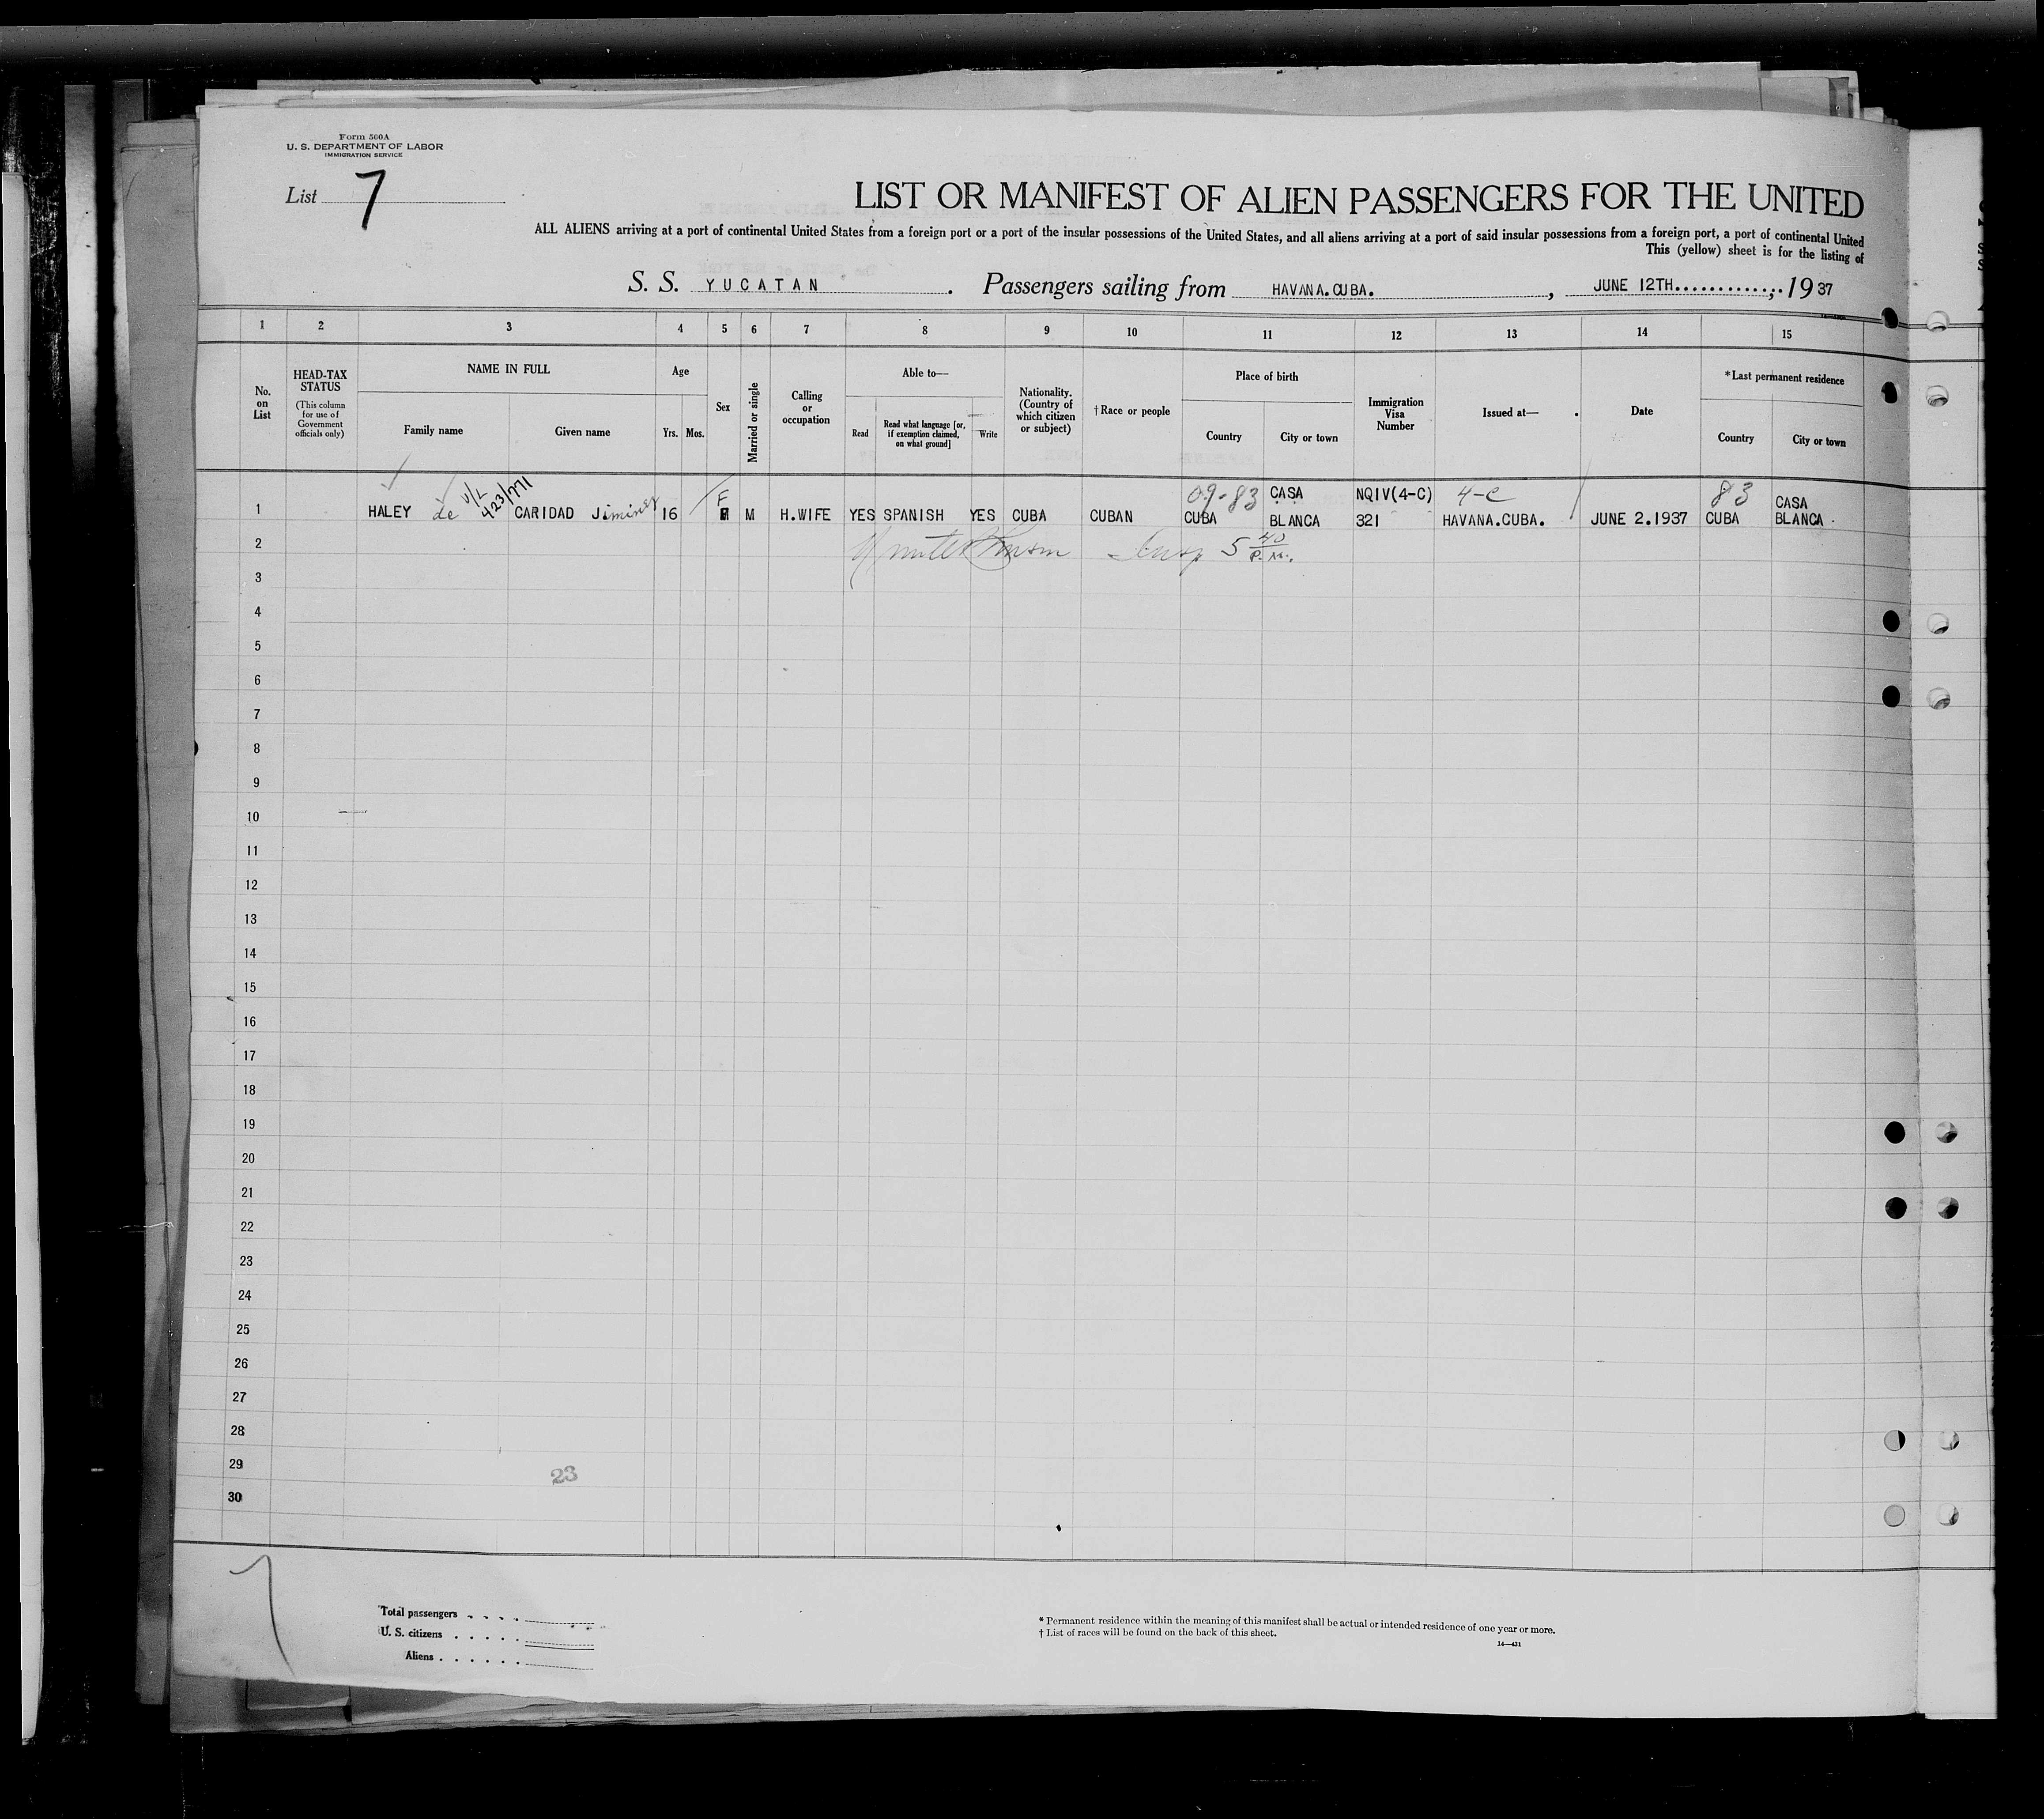 Form 500A
U. S. DEPARTMENT OF LABOR
IMMIGRATION SERVICE
List 7
LIST OR MANIFEST OF ALIEN PASSENGERS FOR THE UNITED
ALL ALIENS arriving at a port of continental United States from a foreign port or a port of the insular possessions of the United States, and all aliens arriving at a port of said insular possessions from a foreign port, a port of continental United
This (yellow) sheet is for the listing of
S. S. YUCATAN. Passengers sailing from HAVANA.CUBA., JUNE 12TH............, 1937
1 2 3 4 5 6 7 8 9 10 11 12 13 14 15
No. on List
HEAD-TAX STATUS
(This column for use of Government officials only)
NAME IN FULL
Family name
Given name
Age
Yrs. Mos.
Sex
Married or single
Calling or occupation
Able to—
Read
Read what language [or, if exemption claimed, on what ground]
Write
Nationality. (Country of which citizen or subject)
†Race or people
Place of birth
Country
City or town
Immigration Visa Number
Issued at—
Date
*Last permanent residence
Country
City or town
V/L 423/771
F 09-83 CASA NQIV(4-C) 4-C 83 CASA
1 HALEY de CARIDAD Jiminez 16 M H.WIFE YES SPANISH YES CUBA CUBAN CUBA BLANCA 321 HAVANA.CUBA. JUNE 2.1937 CUBA BLANCA
2 Insp 5 40 P.M.
3
4
5
6
7
8
9
10
11
12
13
14
15
16
17
18
19
20
21
22
23
24
25
26
27
28
29
30
23
7
Total passengers . . . .
U. S. citizens . . . . .
Aliens . . . . . .
* Permanent residence within the meaning of this manifest shall be actual or intended residence of one year or more.
† List of races will be found on the back of this sheet.
14—431